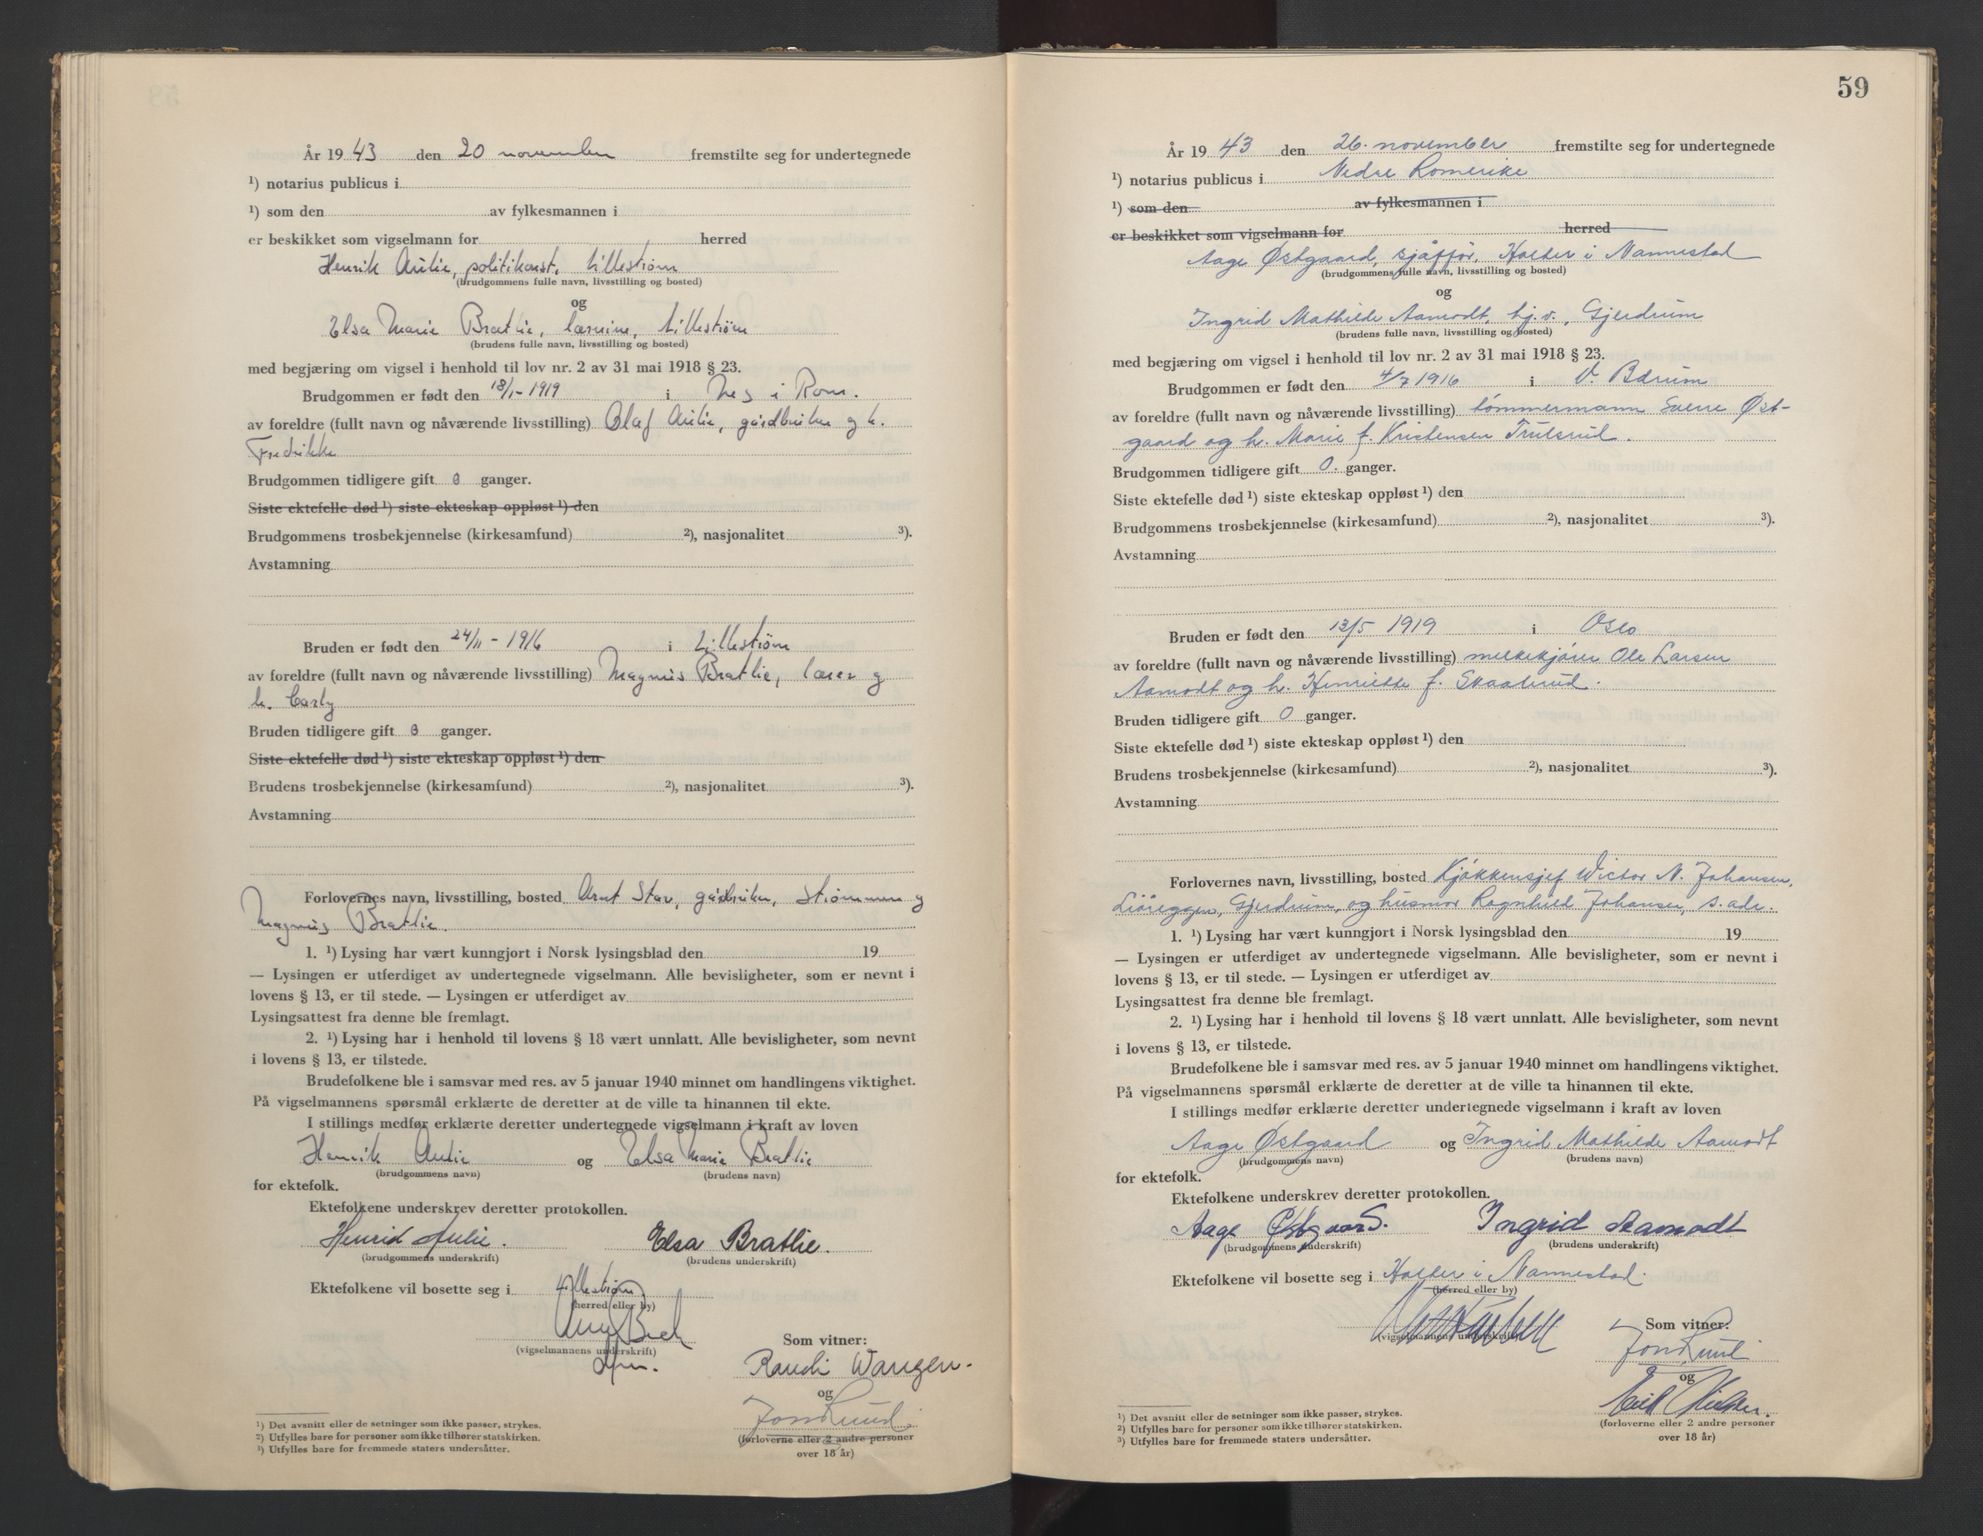 År 1943 den 20 november fremstilte seg for undertegnede
¹) notarius publicus i
¹) som den av fylkesmannen i
er beskikket som vigselmann for herred
Henrik Aulie, politikonst. Lillestrøm
(brudgommens fulle navn, livsstilling og bosted)
og
Elsa Marie Bratlie, lærerinne, Lillestrøm
(brudens fulle navn, livsstilling og bosted)
med begjæring om vigsel i henhold til lov nr. 2 av 31 mai 1918 § 23.
Brudgommen er født den 13/1-1919 i Nes i Rom.
av foreldre (fullt navn og nåværende livsstilling) Olaf Aulie, gårdbruker og h.
Fredrikke
Brudgommen tidligere gift 0 ganger.
Siste ektefelle død ¹) siste ekteskap oppløst ¹) den
Brudgommens trosbekjennelse (kirkesamfund) ²), nasjonalitet ³).
Avstamning
Bruden er født den 24/11-1916 i Lillestrøm
av foreldre (fullt navn og nåværende livsstilling) Magnus Bratlie, lærer og
h. Carly
Bruden tidligere gift 0 ganger.
Siste ektefelle død ¹) siste ekteskap oppløst ¹) den
Brudens trosbekjennelse (kirkesamfund) ²), nasjonalitet ³).
Avstamning
Forlovernes navn, livsstilling, bosted Arnt Stav, gårdbruker, Strømmen og
Magnus Bratlie.
1. ¹) Lysing har vært kunngjort i Norsk lysingsblad den 19
— Lysingen er utferdiget av undertegnede vigselmann. Alle bevisligheter, som er nevnt i
lovens § 13, er til stede. — Lysingen er utferdiget av
Lysingsattest fra denne ble fremlagt.
2. ¹) Lysing har i henhold til lovens § 18 vært unnlatt. Alle bevisligheter, som nevnt
i lovens § 13, er tilstede.
Brudefolkene ble i samsvar med res. av 5 januar 1940 minnet om handlingens viktighet.
På vigselmannens spørsmål erklærte de deretter at de ville ta hinannen til ekte.
I stillings medfør erklærte deretter undertegnede vigselmann i kraft av loven
Henrik Aulie og Elsa Marie Bratlie
(brudgommens navn) (brudens navn)
for ektefolk.
Ektefolkene underskrev deretter protokollen.
Henrik Aulie. Elsa Bratlie.
(brudgommens underskrift) (brudens underskrift)
Ektefolkene vil bosette seg i Lillestrøm
(herred eller by)
Som vitner:
(vigselmannens underskrift)
Randi Wangen.
og
Jon Ruud
(forloverne eller 2 andre personer
over 18 år)
¹) Det avsnitt eller de setninger som ikke passer, strykes.
²) Utfylles bare for personer som ikke tilhører statskirken.
³) Utfylles bare for fremmede staters undersåtter.
59
År 1943 den 26. november fremstilte seg for undertegnede
¹) notarius publicus i Nedre Romerike
¹) som den av fylkesmannen i
er beskikket som vigselmann for herred
Aage Østgaard, sjåffør, Holter i Nannestad
(brudgommens fulle navn, livsstilling og bosted)
og
Ingrid Mathilde Aamodt, hj.v., Gjerdrum
(brudens fulle navn, livsstilling og bosted)
med begjæring om vigsel i henhold til lov nr. 2 av 31 mai 1918 § 23.
Brudgommen er født den 4/7 1916 i V. Bærum
av foreldre (fullt navn og nåværende livsstilling) tømmermann Sverre Øst-
gaard og h. Marie f. Kristensen Trulsrud.
Brudgommen tidligere gift 0. ganger.
Siste ektefelle død ¹) siste ekteskap oppløst ¹) den
Brudgommens trosbekjennelse (kirkesamfund) ²), nasjonalitet ³).
Avstamning
Bruden er født den 13/5 1919 i Oslo
av foreldre (fullt navn og nåværende livsstilling) melkekjører Ole Larsen
Aamodt og h. Henriette f. Skaalerud.
Bruden tidligere gift 0 ganger.
Siste ektefelle død ¹) siste ekteskap oppløst ¹) den
Brudens trosbekjennelse (kirkesamfund) ²), nasjonalitet ³).
Avstamning
Forlovernes navn, livsstilling, bosted Kjøkkensjef Victor N. Johansen,
Gjerdrum, og husmor Ragnhild Johansen, s. adr.
1. ¹) Lysing har vært kunngjort i Norsk lysingsblad den 19
— Lysingen er utferdiget av undertegnede vigselmann. Alle bevisligheter, som er nevnt i
lovens § 13, er til stede. — Lysingen er utferdiget av
Lysingsattest fra denne ble fremlagt.
2. ¹) Lysing har i henhold til lovens § 18 vært unnlatt. Alle bevisligheter, som nevnt
i lovens § 13, er tilstede.
Brudefolkene ble i samsvar med res. av 5 januar 1940 minnet om handlingens viktighet.
På vigselmannens spørsmål erklærte de deretter at de ville ta hinannen til ekte.
I stillings medfør erklærte deretter undertegnede vigselmann i kraft av loven
Aage Østgaard og Ingrid Mathilde Aamodt
(brudgommens navn) (brudens navn)
for ektefolk.
Ektefolkene underskrev deretter protokollen.
Aage Østgaard. Ingrid Aamodt
(brudgommens underskrift) (brudens underskrift)
Ektefolkene vil bosette seg i Holter i Nannestad.
(herred eller by)
Som vitner:
(vigselmannens underskrift)
Jon Ruud
og
(forloverne eller 2 andre personer
over 18 år)
¹) Det avsnitt eller de setninger som ikke passer, strykes.
²) Utfylles bare for personer som ikke tilhører statskirken.
³) Utfylles bare for fremmede staters undersåtter.